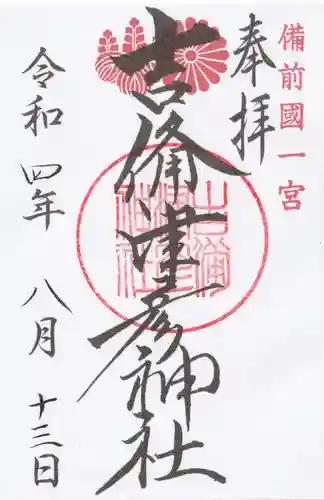 備前國一宮
奉拝
吉備津彦神社
令和四年八月十三日